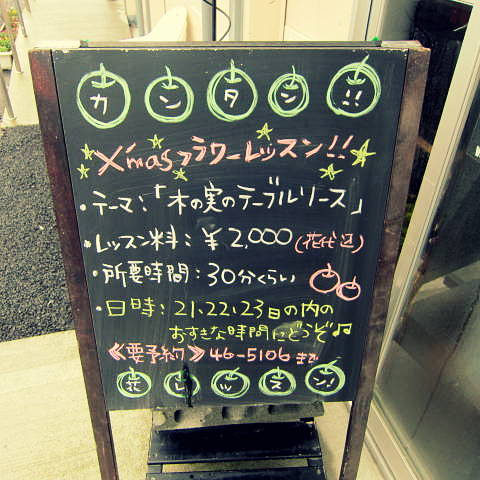 カンタン!!
X'masフラワーレッスン!!
・テーマ:「木の実のテーブルリース」
・レッスン料:¥2,000(花代込)
・所要時間:30分くらい
・日時:21、22、23日の内の
おすきな時間にどうぞ♫
≪要予約≫46-5106まで
花レッスン!